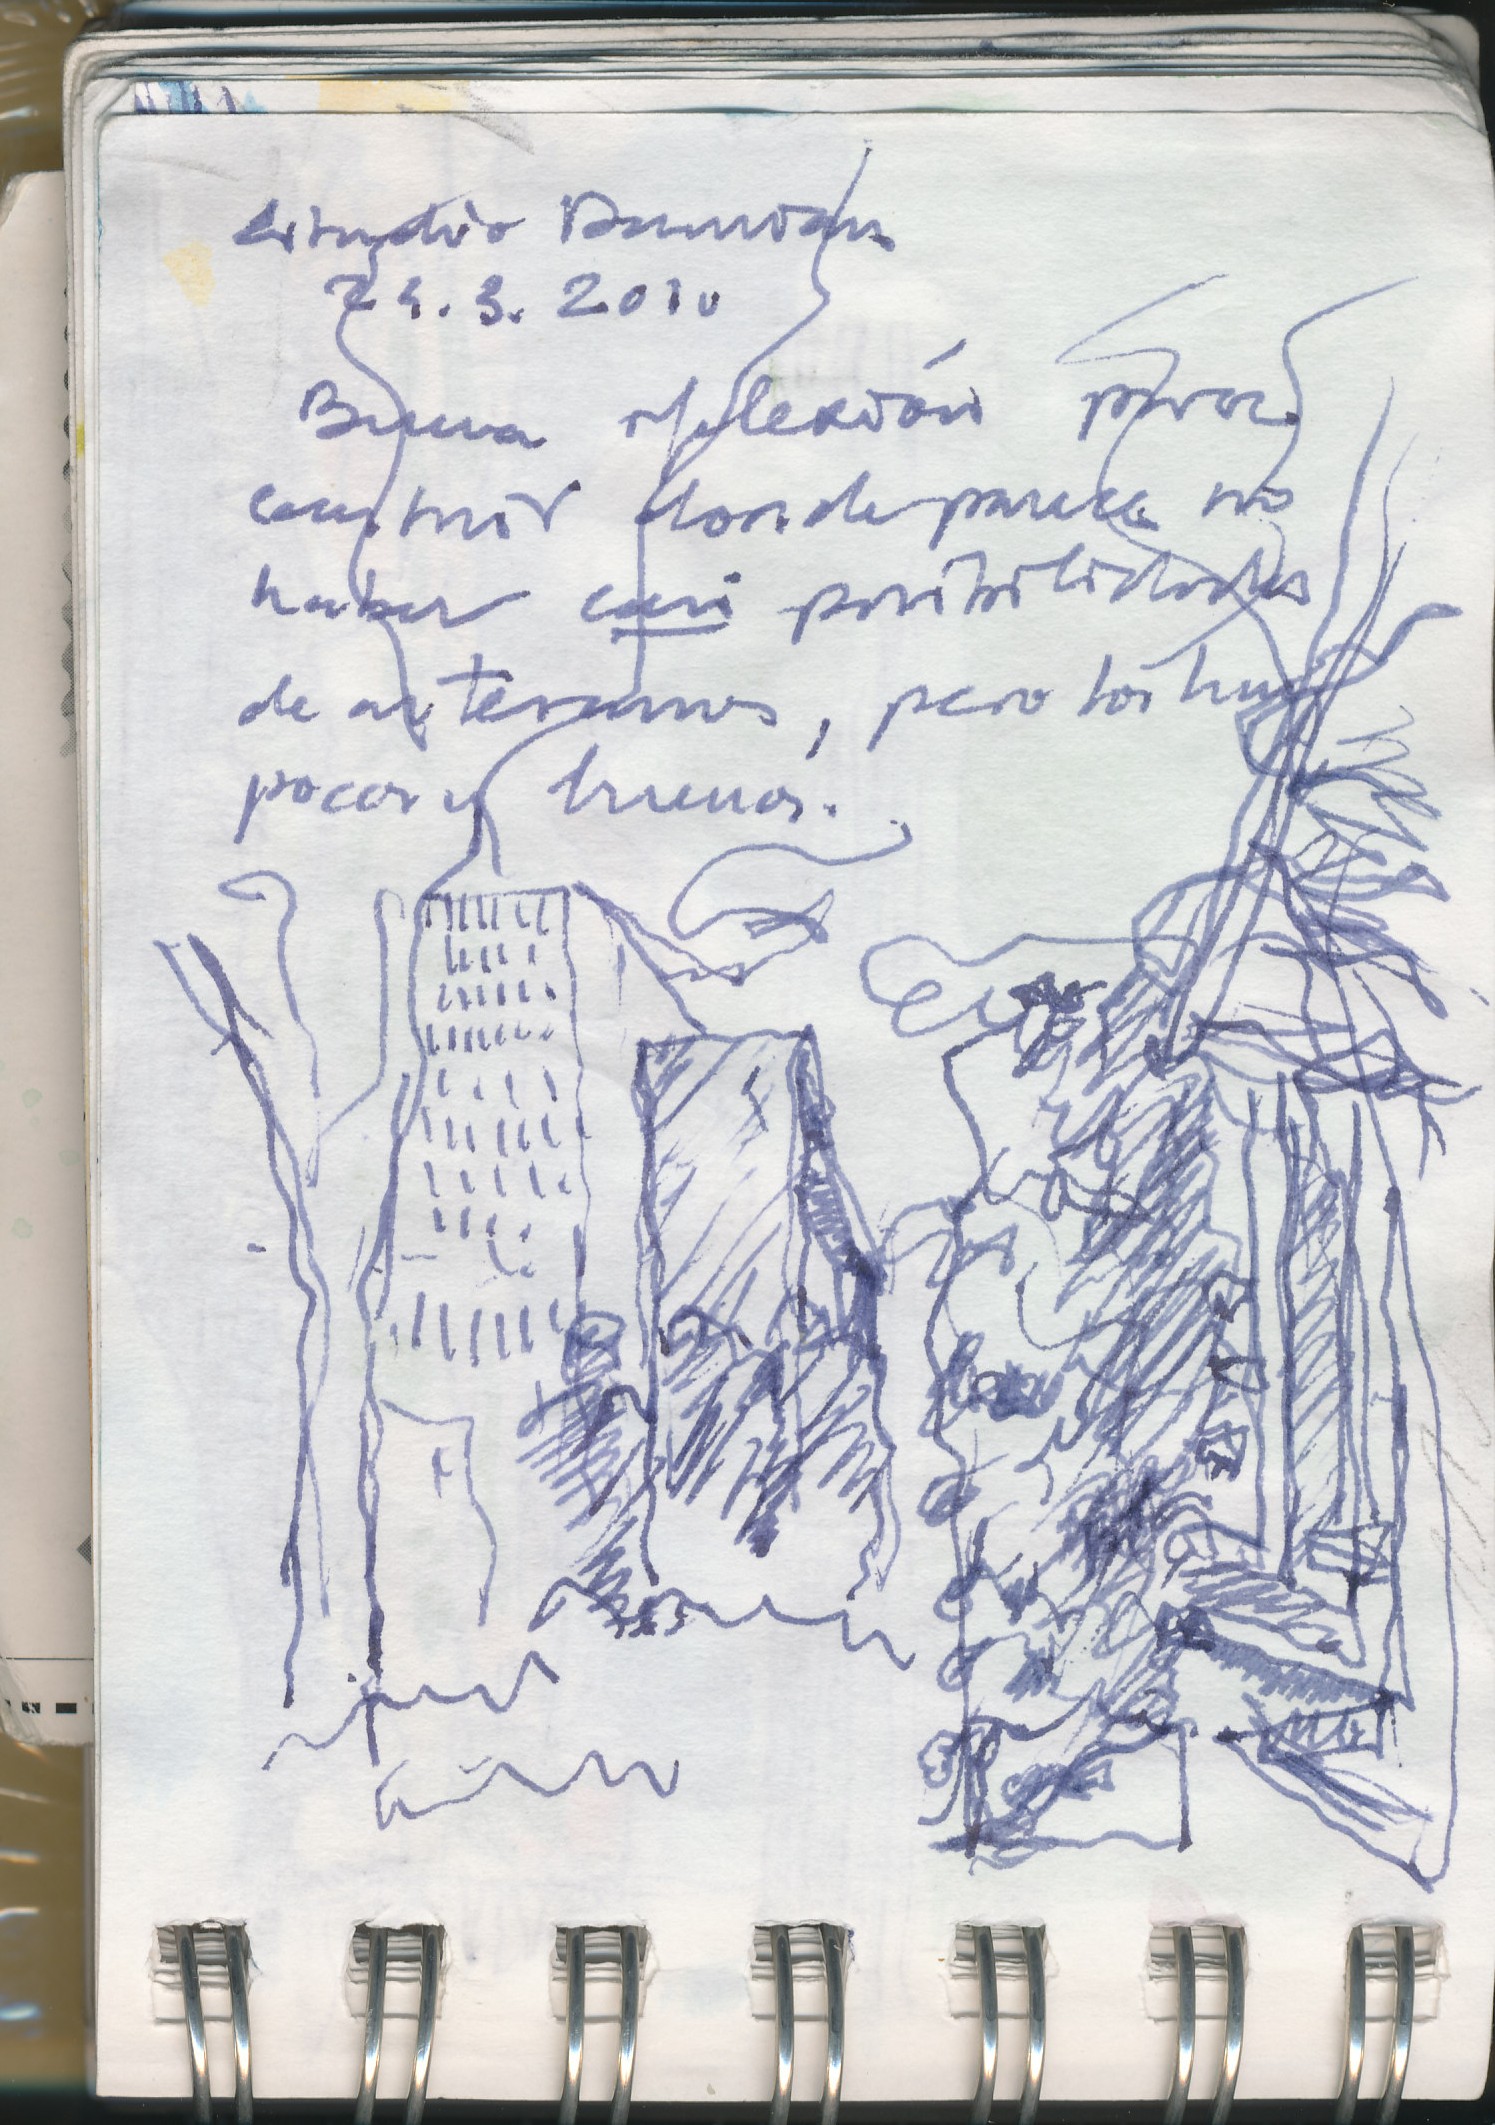 Estudio Damián
24.3.2010
Buena reflexión para
construir donde parece no
haber casi posibilidades
de, pero los hay
pocos y buenos.